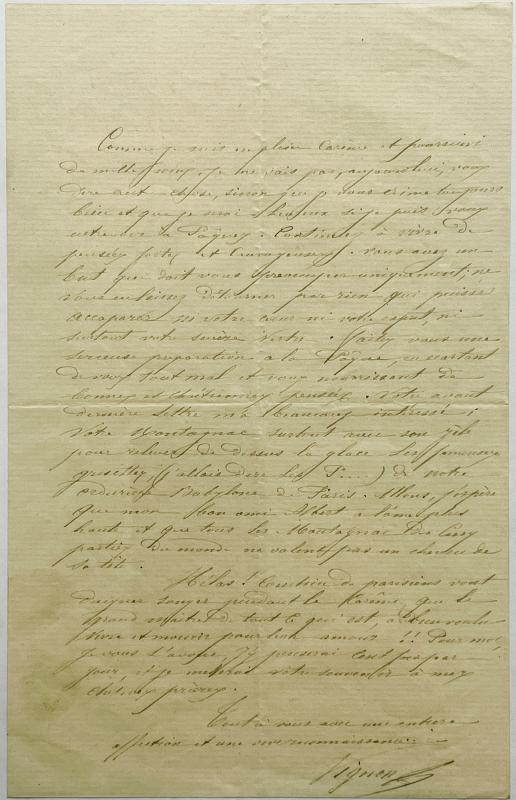 Comme je suis en plein carême et poursuivi
de mille soins, je ne vais pas, aujourd'hui, vous
dire autre chose, sinon que je vous aime toujours
bien et que je serai heureux si je puis vous
être à Pâques. Continuez à vivre de
pensées fortes et courageuses. Vous avez un
but qui doit vous préoccuper uniquement; ne
vous en laissez détourner par rien qui puisse
accaparer ni votre cœur ni votre esprit, ni
surtout votre Faites vous une
sérieuse préparation à la Pâque, en écartant
de vous tout mal et vous nourrissant de
bonnes et chrétiennes pensées. Votre avant
dernière lettre m'a beaucoup intéressé;
Votre Montagnac surtout avec son zèle
pour relever de dessus la glace les fameuses
grisettes, (j'allais dire les P.....) de notre
ordurière Babylone de Paris. Allons, j'espère
que mon bon ami Albert a l'âme plus
haute et que tous les Montagnac des cinq
parties du monde ne valent pas un cheveu de
sa tête.
Hélas! Combien de parisiens vont
daigner songer pendant le Karême, que le
grand maître de tout ce qui est, a bien voulu
vivre et mourir pour leur amour!! Pour moi,
je vous l'avoue, j'y penserai cent fois par
jour, et je mêlerai votre souvenir à mes
chétives prières.
Tout à vous avec une entière
affection et une vive reconnaissance.
Vignon